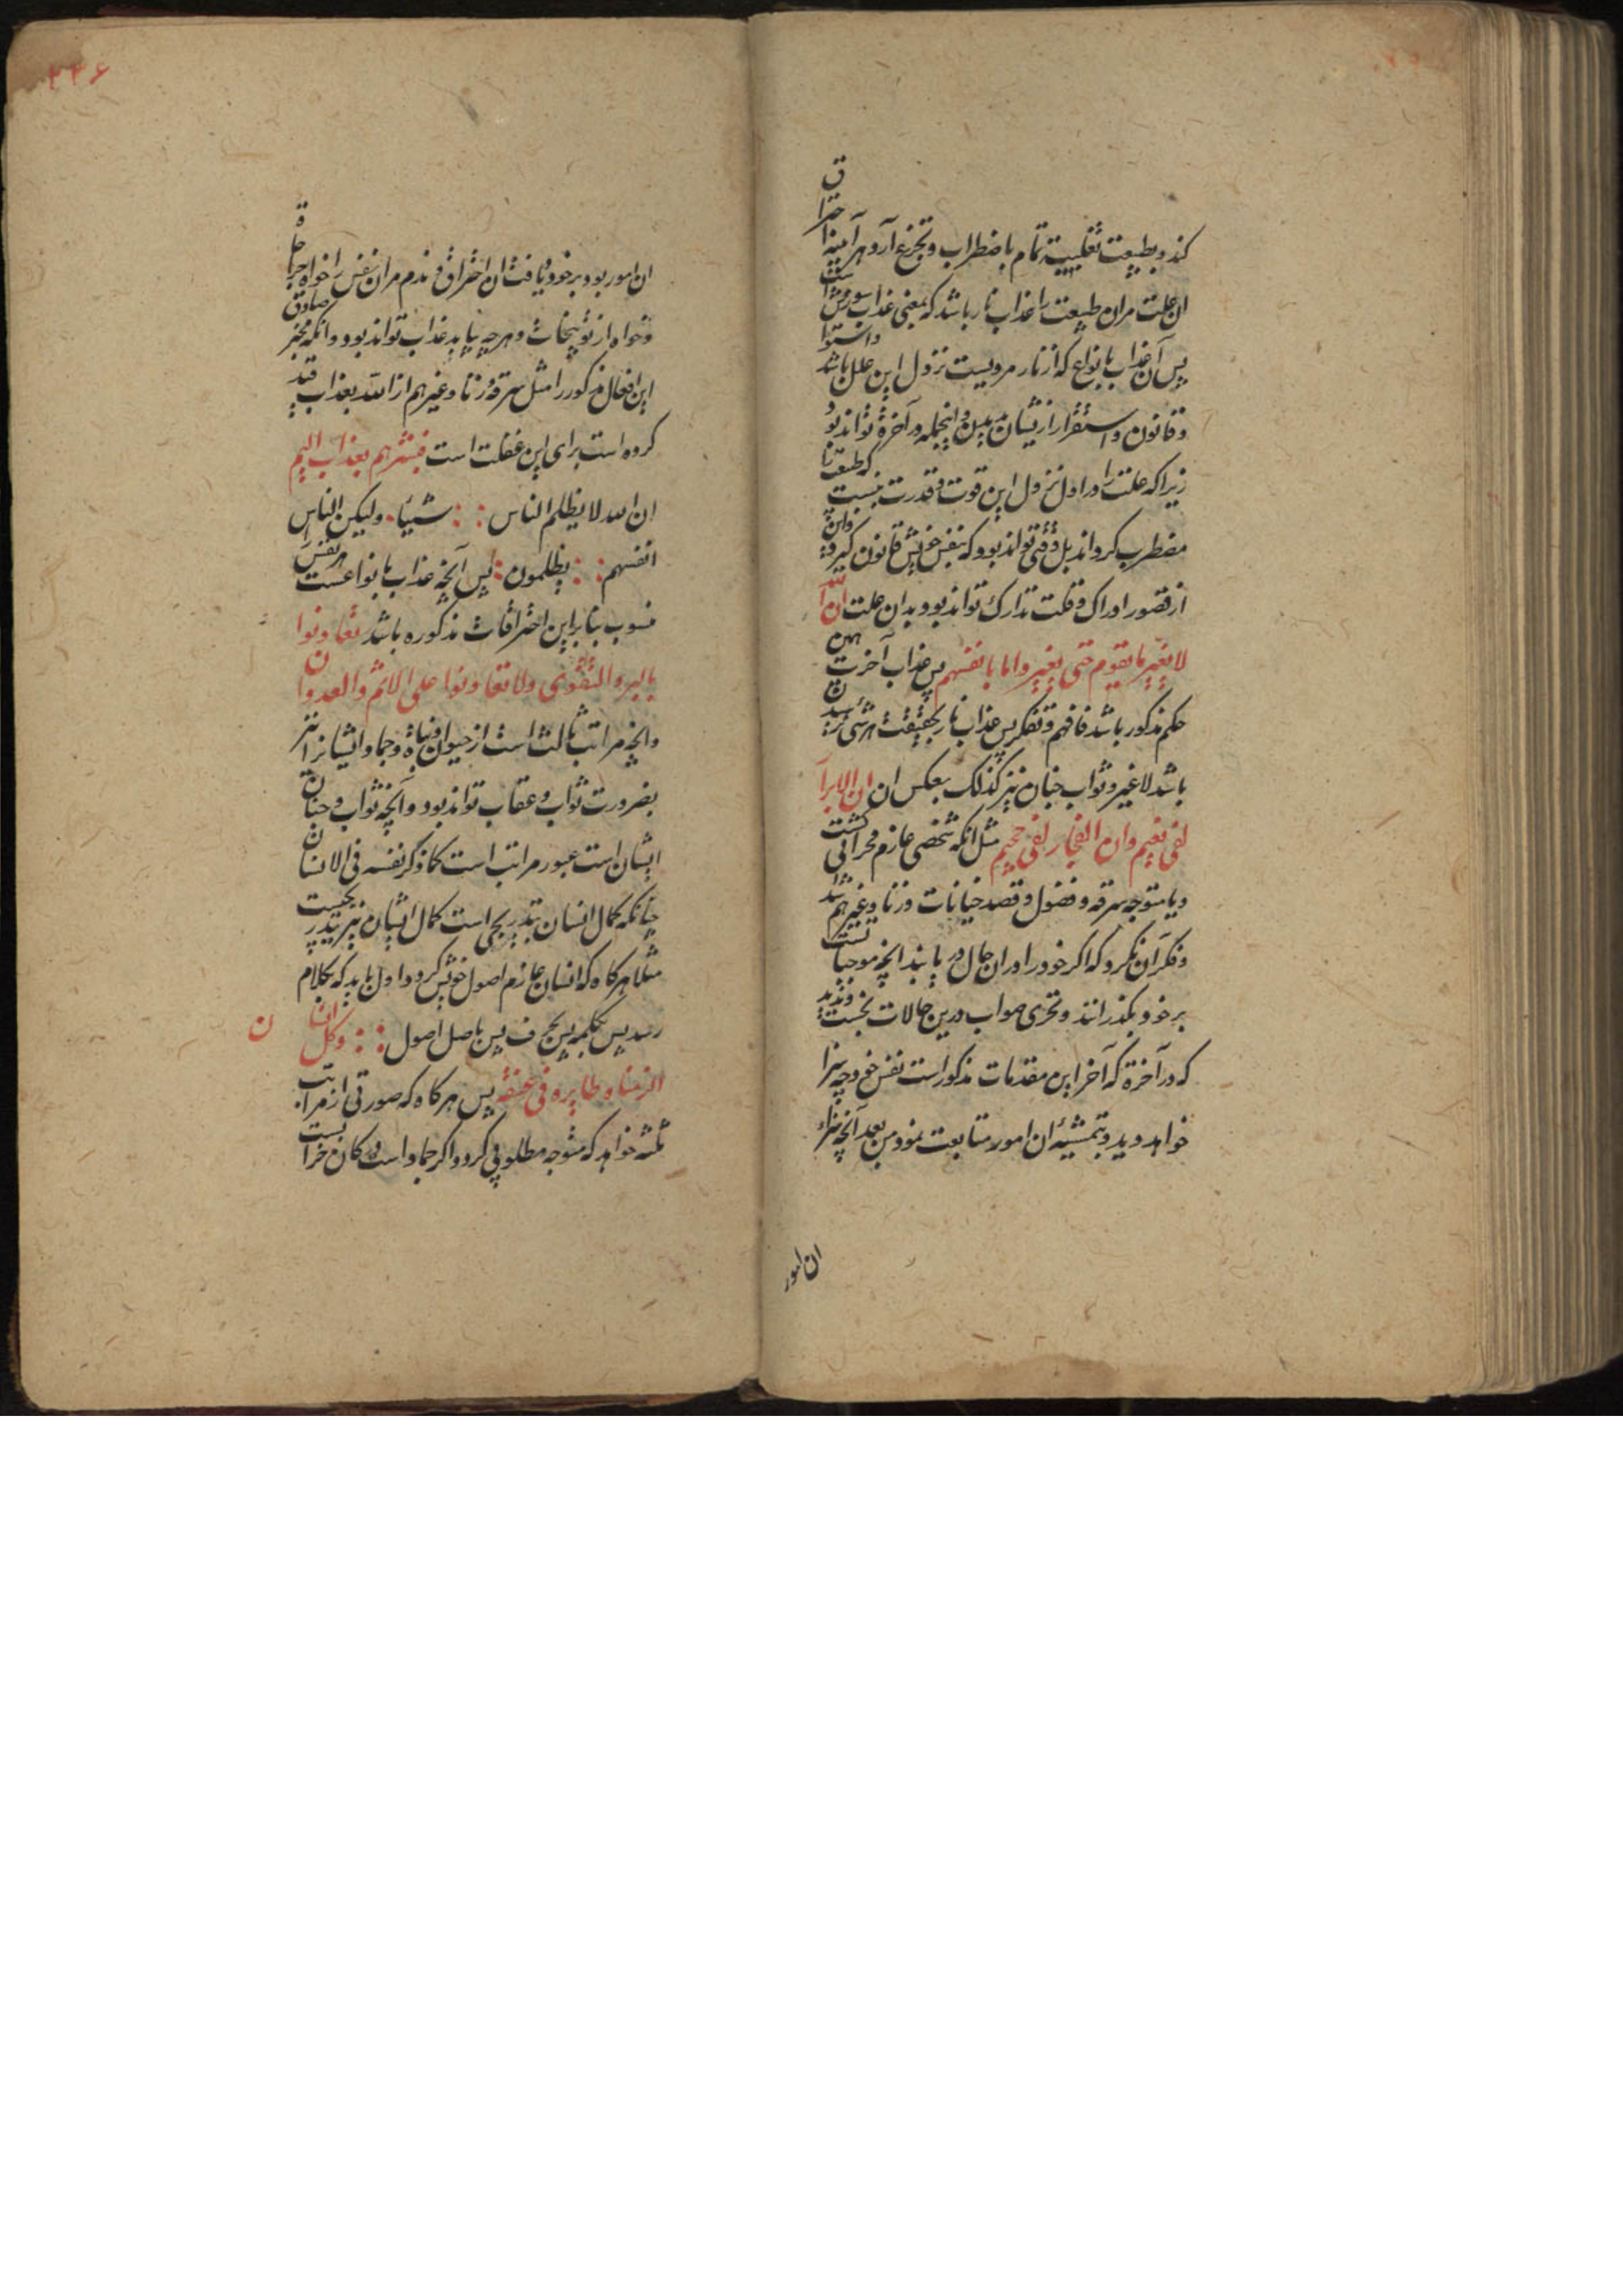 کند و بطبیعت تغلیبیة تمام باضطراب و تجزع آرد هر آینه احتراق
ان علت مران طبیعت را عذاب نار باشد که بمعنی عذاب سوزش است
پس آن عذاب بانواع که از نار مرویست نزول این علل باشد
و قانون و استقرار از نیشان و اینجمله در آخرة تواند بود
زیرا که علت را در اول نزول این قوت و قدرت نیست که طبیعت را
مضطرب کرداند بل وقتی تواند بود که بنفس خویش قانون کیرد و این
از قصور ادراک و قلت تدارک تواند بود بدان علت ان الله
لا یغیر ما بقوم حتی یغیروا ما بانفسهم پس عذاب آخرت همین
حکم مذکور باشد فافهم و تفکر پس عذاب نار بحقیقت هر شئ
باشد لا غیر و ثواب جنان نیز کذلک بعکس ان ان الابرار
لفی نعیم وان الفجار لفی جحیم مثل انکه شخصی عازم محراتی کشت
و یا متوجه سرقه و فضول و قصد خیانات و زنا و غیرهم شد
و فکر آن نکرد که اکر خود را در ان حال دریابند انچه موجبات
بر خود بکذرانند و تحری صواب درین حالات نجست و ندید
که در آخرة که آخر این مقدمات مذکور است نفس خود چه سزا
خواهد دید و بتمشیه ان امور متابعت نمود من بعد آنچه سزاء
ان امور
۲۲۶
ان امور بود بر خود یافت ان احتراق و ندم مران نفس را خواه جراحة
و خواه از توبیخات و هر چه یابد عذاب تواند بود و انکه مخبر صادق
این افعال مذکور را مثل سرقه و زنا و غیرهم از الله بعذاب قید
کرده است برای این غفلت است فبشرهم بعذاب الیم
ان الله لا یظلم الناس شیئا ولیکن الناس
انفسهم یظلمون پس آنچه عذاب بانواعست هر نفس
منسوب بنابراین احتراقات مذکوره باشد تعاونوا
بالبر و التقوی ولا تعاونوا علی الاثم والعدوان
وانچه مراتب ثالث است از حیوان و نباة و جماد ایشانرا نیز
بضرورت ثواب و عقاب تواند بود و آنچه ثواب و جنان
ایشان است عبور مراتب است کما ذکر نفسه فی الانسان
چنانکه کمال انسان بتدریجی است کمال ایشان نیز بتدریجیست
مثلا هر کاه که انسان عازم اصول خویش کردد اول باید که بکلام
رسد پس بکلمه پس بحرف پس باصل اصول وکل انسان
الزمناه طایره فی عنقه پس هر کاه که صورتی از مراتب
ثلثه خواهد که متوجه مطلوبی کردد اکر جماد است